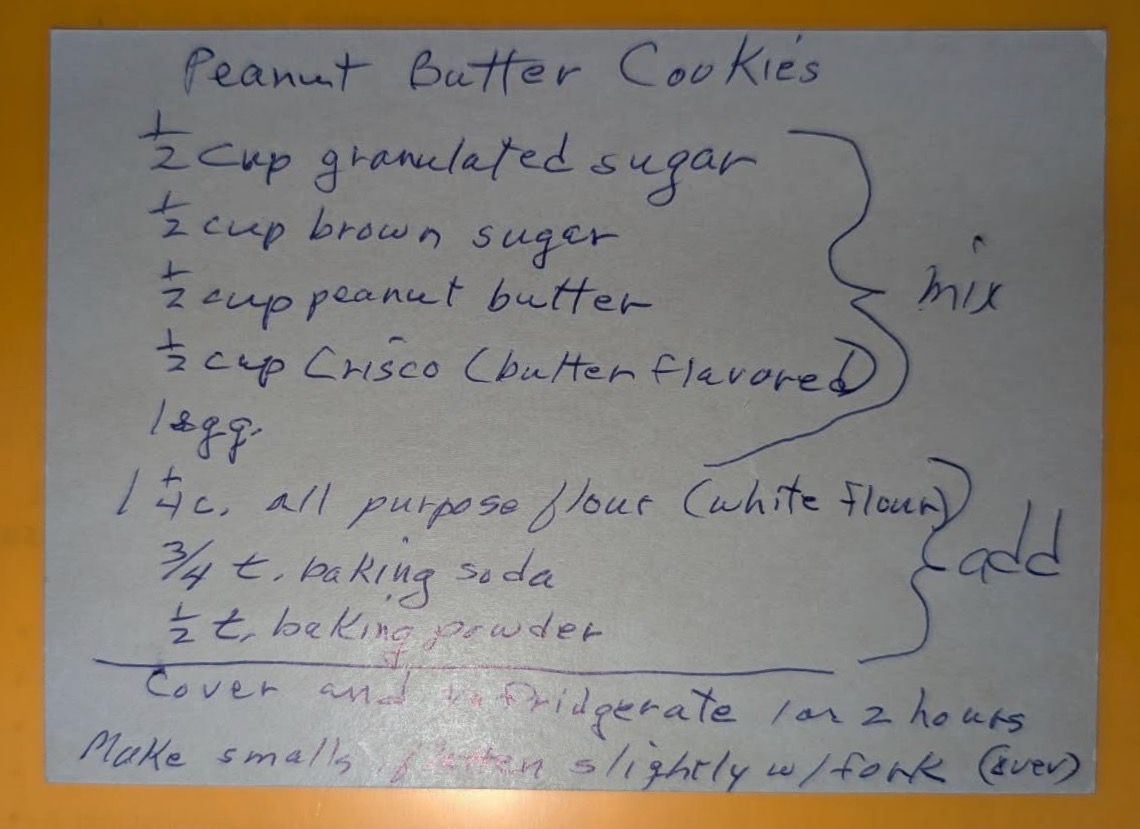 Peanut Butter Cookies
1/2 cup granulated sugar
1/2 cup brown sugar
1/2 cup peanut butter
1/2 cup Crisco (butter flavored)
mix
1 egg.
1 1/4 c. all purpose flour (white flour)
3/4 t. baking soda
add
1/2 t. baking powder
Cover and refridgerate 1 or 2 hours
Make small flatten slightly w/fork (over)